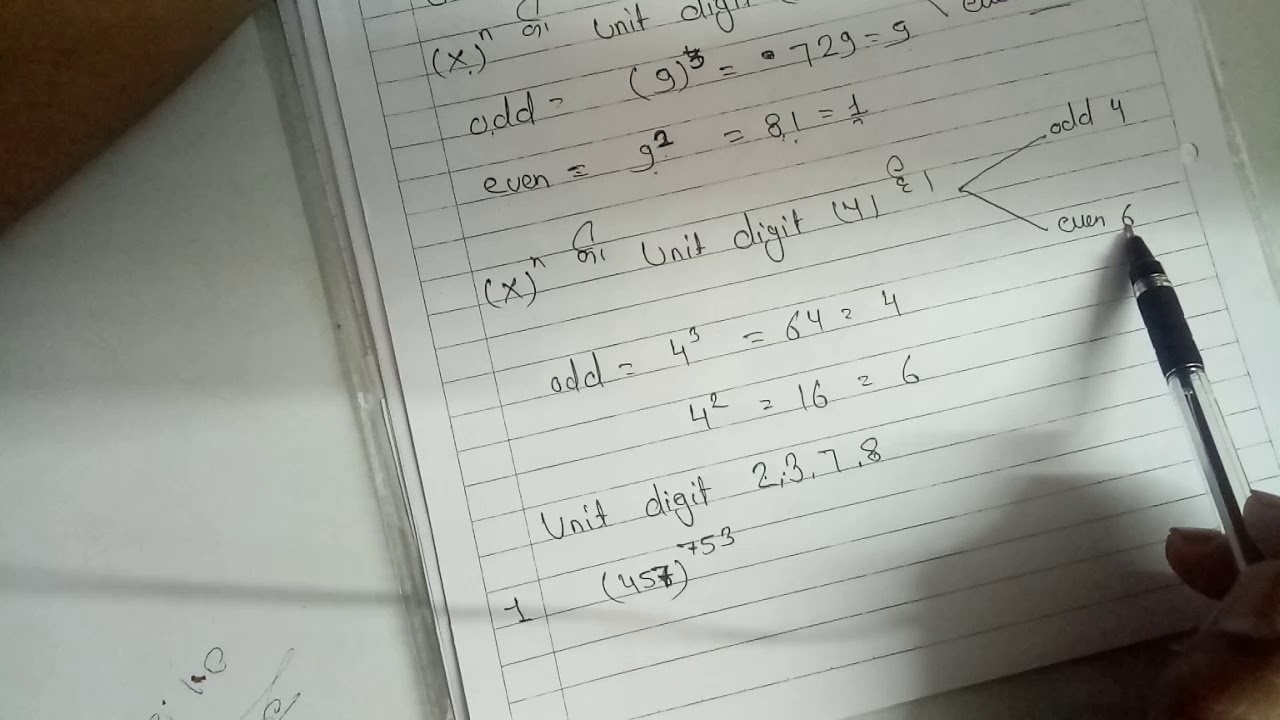 (x)ⁿ का Unit digit
odd = (9)³ = 729 = 9
even = 9² = 81 = 1
(x)ⁿ का Unit digit (4) है।
odd 4
even 6
odd = 4³ = 64 = 4
4² = 16 = 6
Unit digit 2,3,7,8
1 (457)⁷⁵³